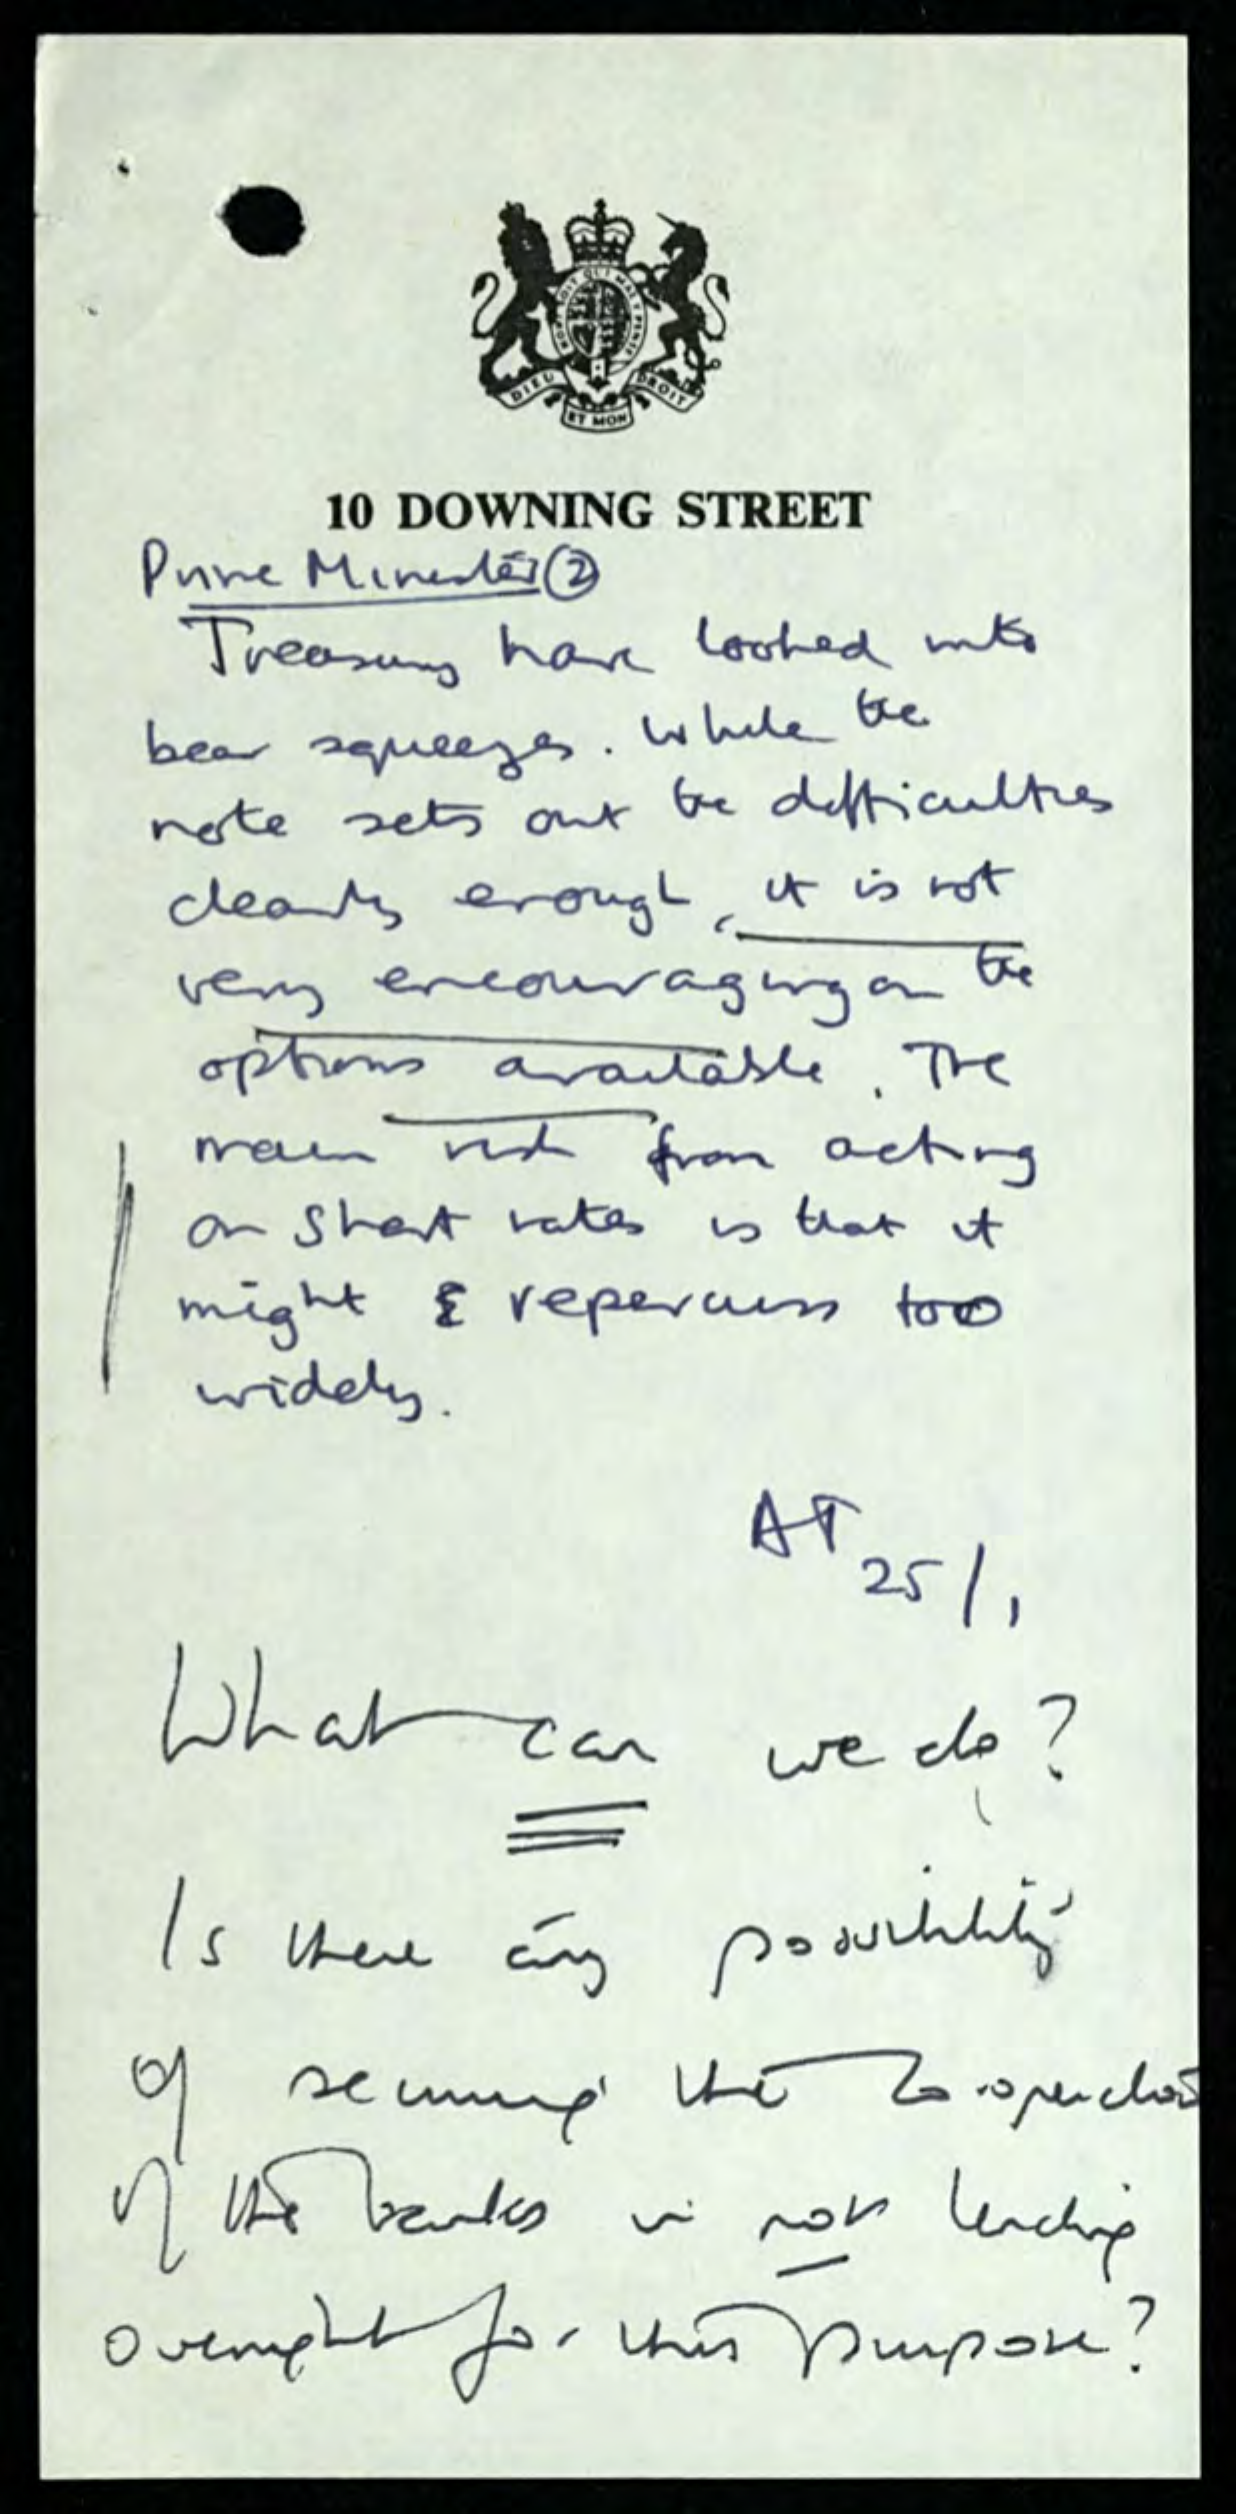 HONI SOIT QUI MAL Y PENSE
DIEU ET MON DROIT
10 DOWNING STREET
Prime Minister ②
Treasury have looked into
bear squeezes. While the
note sets out the difficulties
clearly enough, it is not
very encouraging on the
options available. The
main risk from acting
on short rates is that it
might repercuss too
widely.
AT
25/1
What can we do?
Is there any possibility
of securing the co-operation
of the banks in not lending
overnight for this purpose?